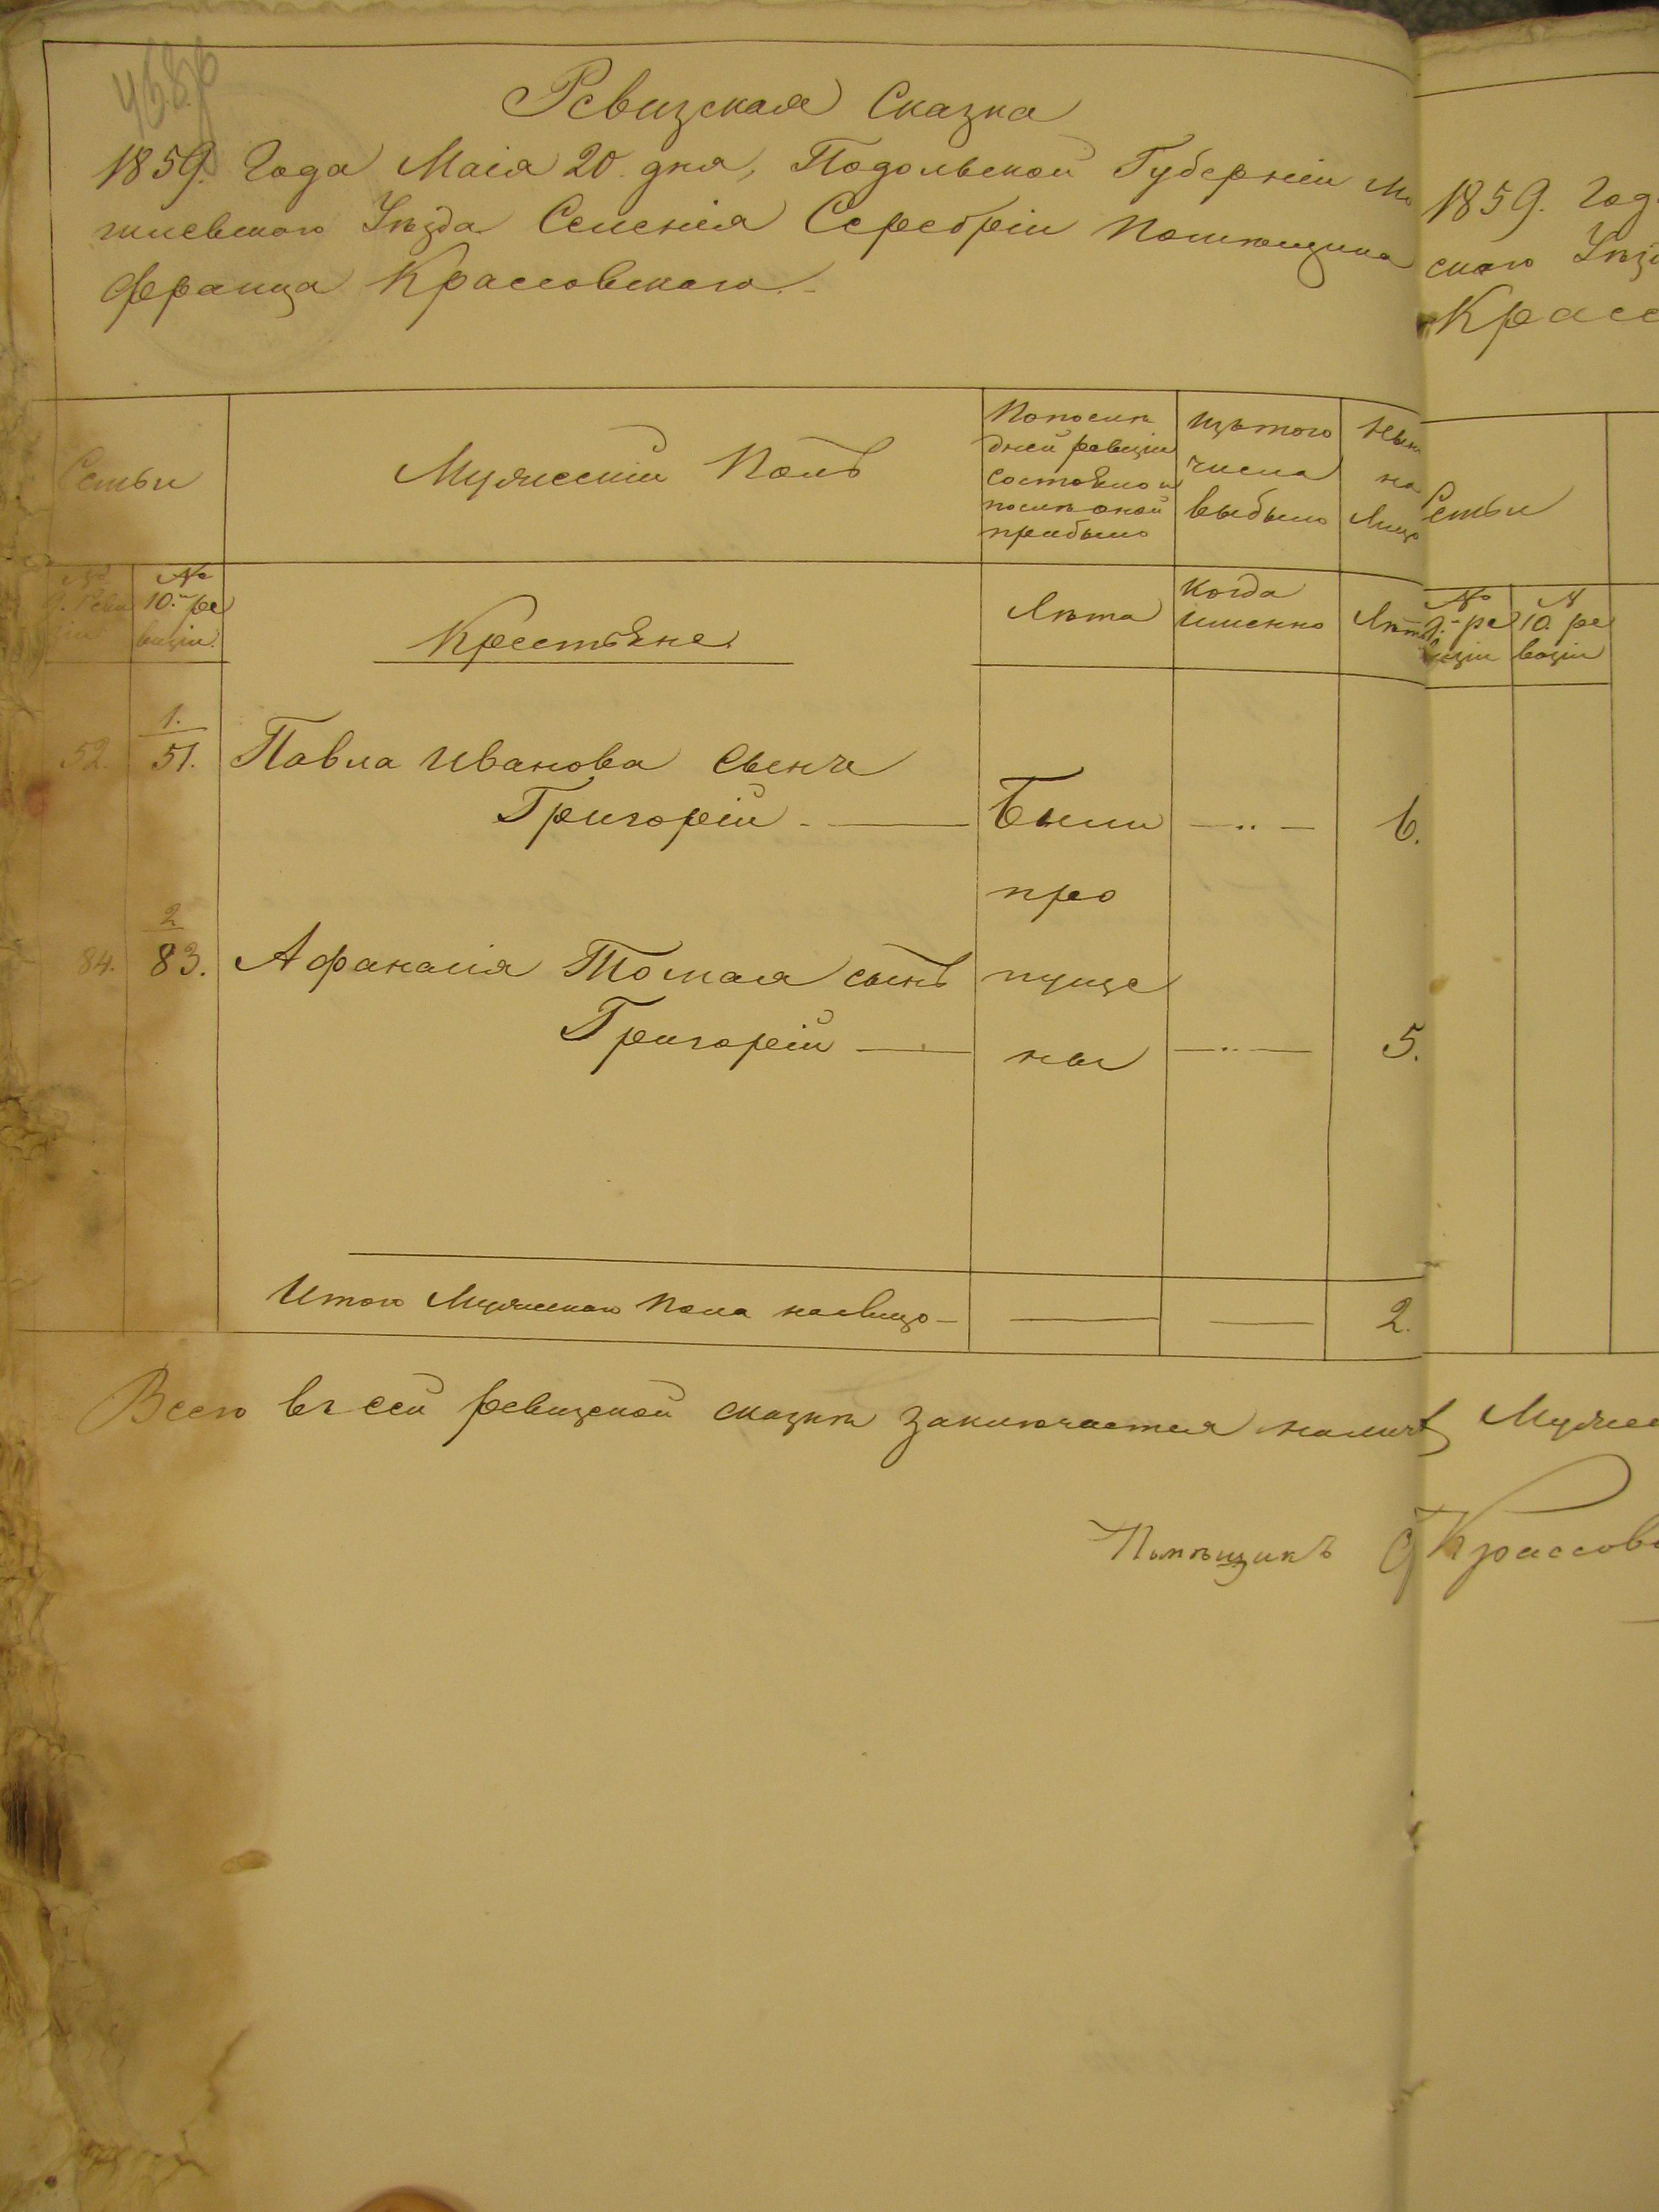 Ревизская Сказка
1859. Года Маія 20. дня, Подольской Губерніи Мо
гилевского Уѣзда Селенія Серебріи Помѣщика
Франца Крассовского.
Семьи
Мужескій Полъ
По послѣ
дней ревизіи
состояло и
послѣ оной
прибыло
Изъ того
числа
выбыло
Нынѣ
на
лицо
№
9. Реви
зіи
№
10.й ре
визіи.
Крестьяне
Лѣта
Когда
именно
Лѣта
1.
52. 51. Павла Иванова сынъ
Григорій - — Были —..— 6.
про
2
84. 83. Афанасія Томая сынъ пуще
Григорій — ны —..— 5.
Итого Мужеского пола налицо — — — 2.
Всего въ сей ревизской сказкѣ заключается налич
Помѣщикъ Ф Крассовс
1859. Год
ского Уѣз
Красс
Семьи
№
9.й ре
визіи
№
10. ре
визіи
Мужес